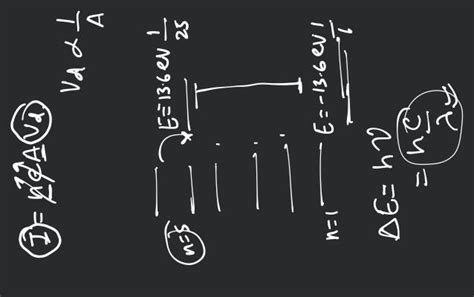 I = neAVd Vd ∝ 1/A
n=5 E=13.6eV 1/25
n=1 E=-13.6eV 1/1
ΔE = hν
= hc/λ